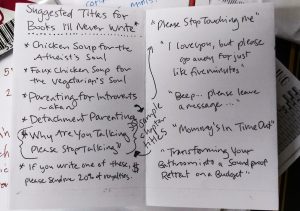 Suggested Titles for
Books I'll Never Write
* Chicken Soup for the
Atheist's Soul
* Faux Chicken Soup for
the Vegetarian's Soul
* Parenting for Introverts
* Detachment Parenting
* Why Are You Talking
Please Stop Talking
* If you write one of these,
please send me 20% of royalties.
sample
chapter
titles
"Please Stop Touching Me"
"I love you, but please
go away for just
like five minutes."
"Beep... please leave
a message..."
"Mommy's In Time Out"
"Transforming Your
Bathroom into a Soundproof
Retreat on a Budget"